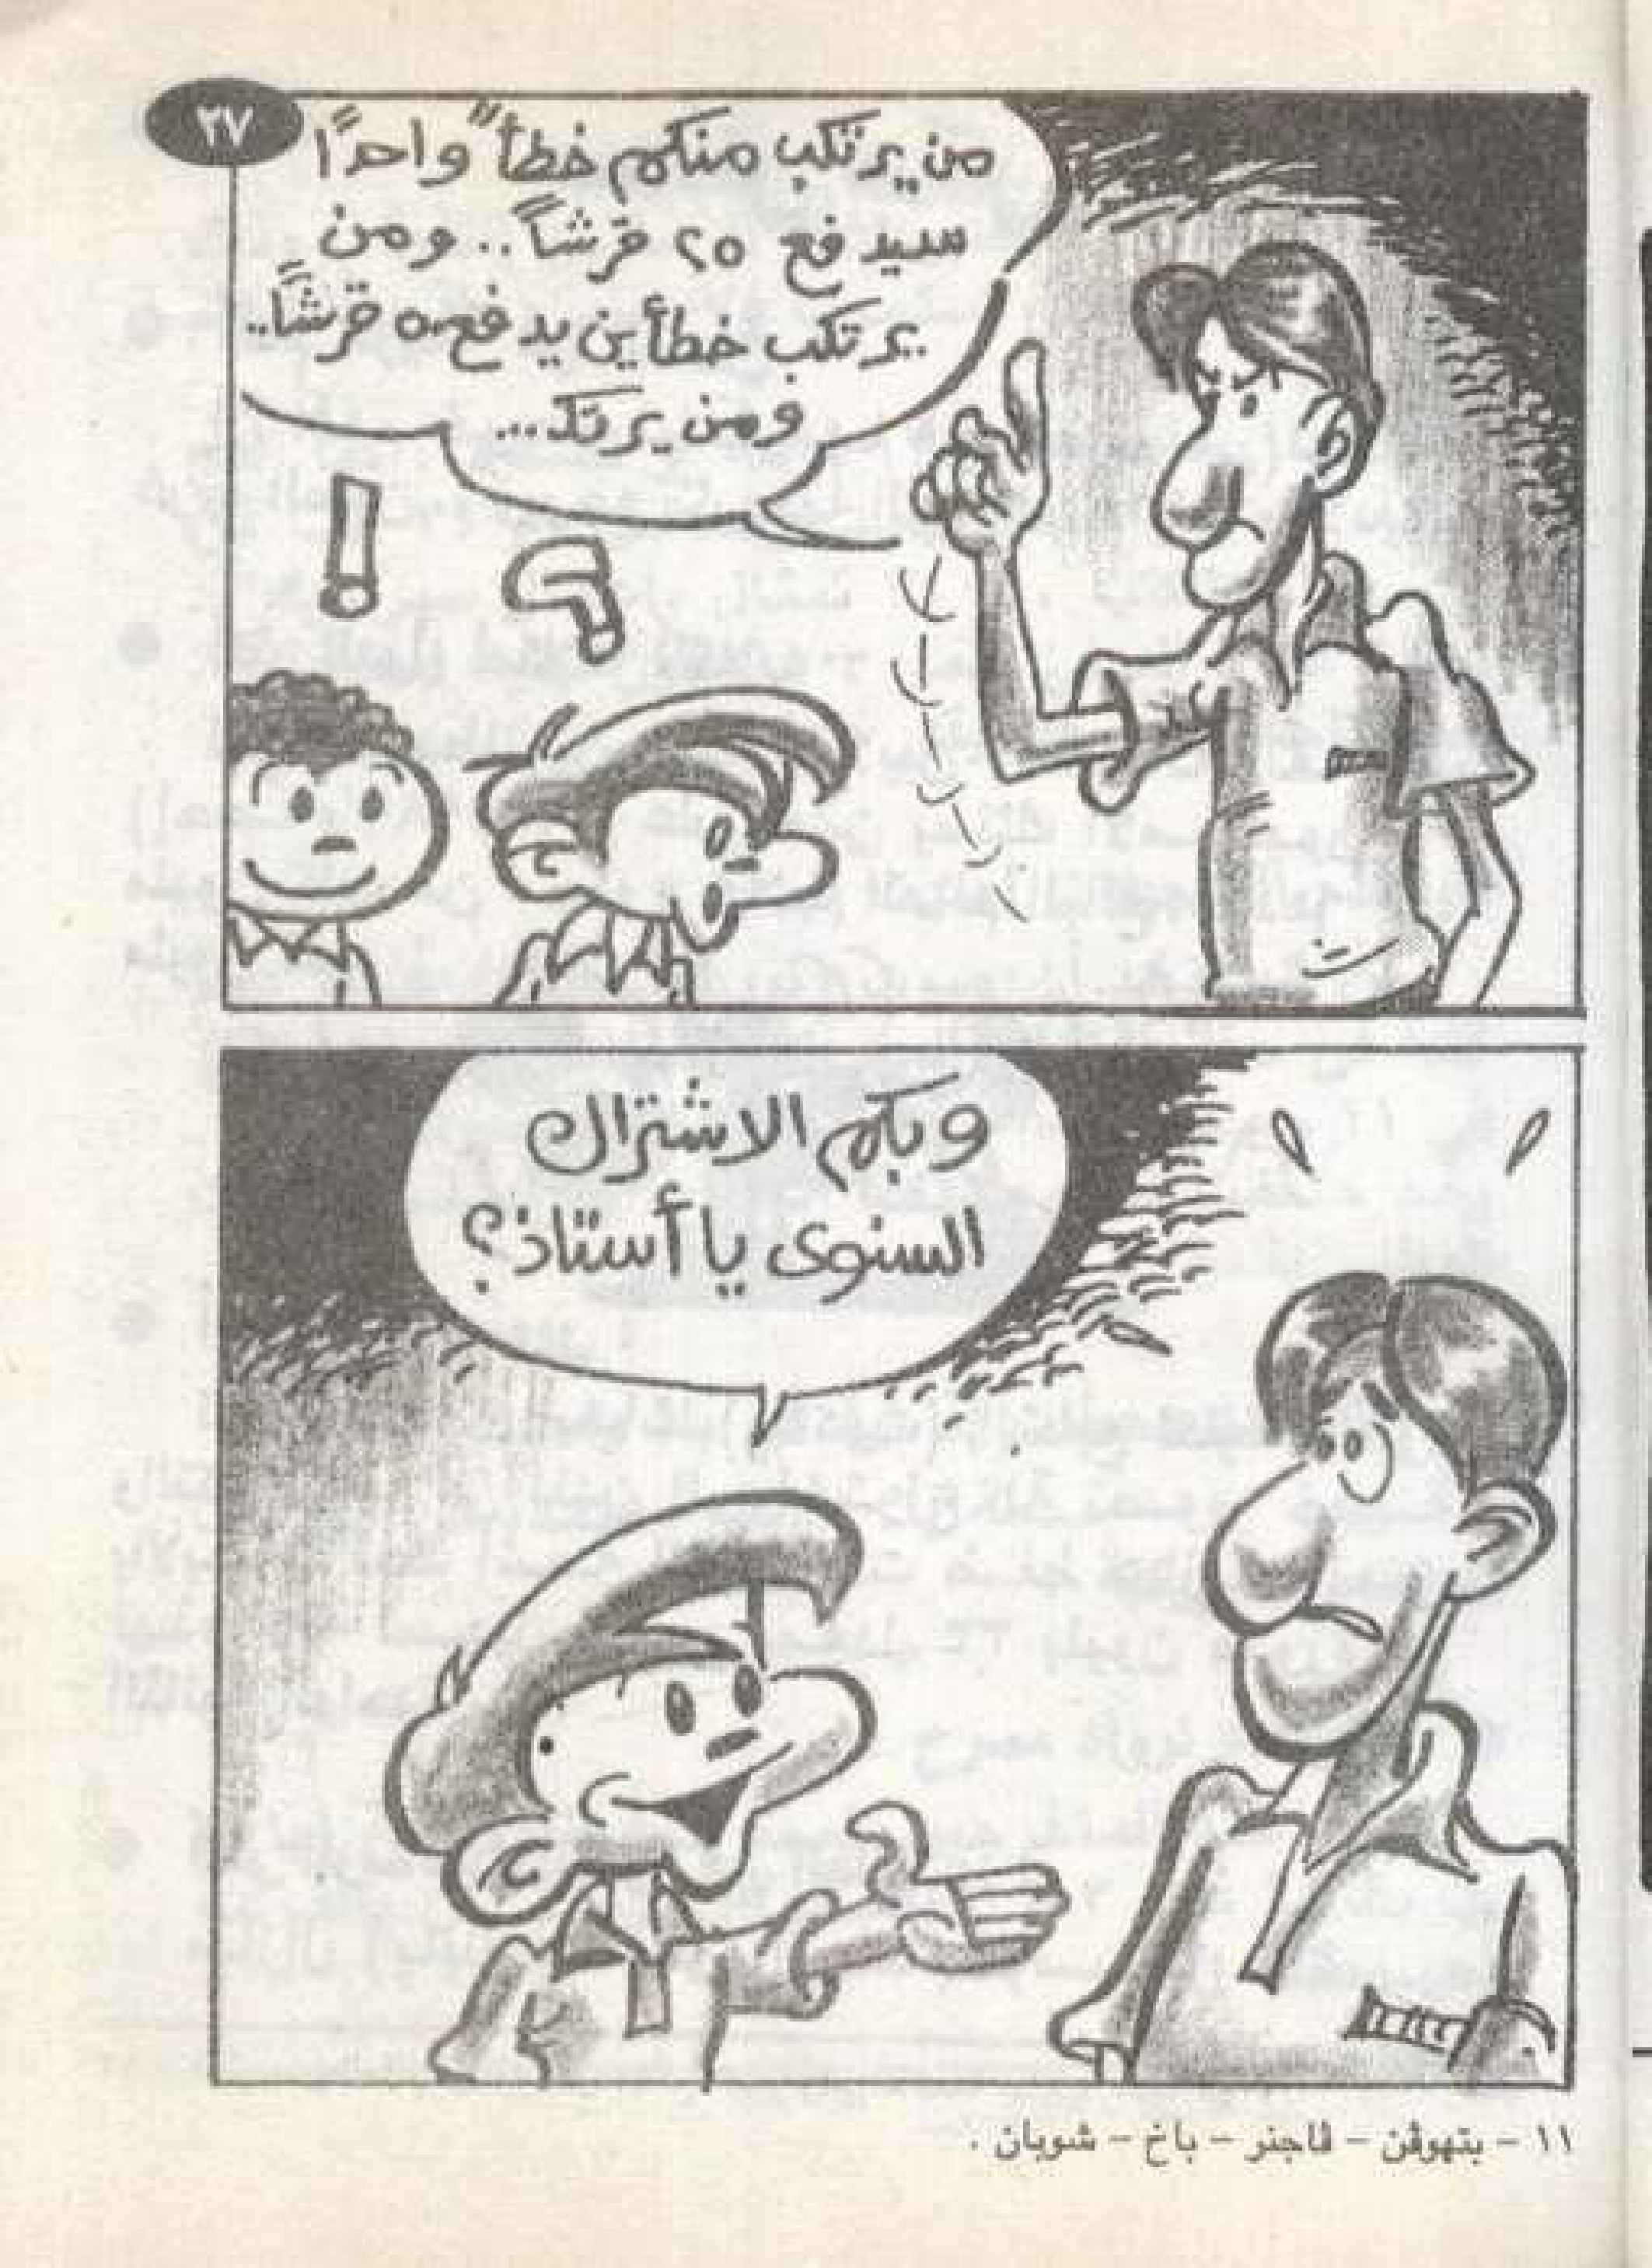 ٣٧
من يرتكب منكم خطأ واحدًا
سيدفع ٢٥ قرشاً.. ومن
يرتكب خطأين يدفع ٥٠ قرشاً..
ومن يرتك...
!
؟
وبكم الاشتراك
السنوى يا أستاذ؟
١١ - بتهوڤن - ڤاجنر - باخ - شوبان .